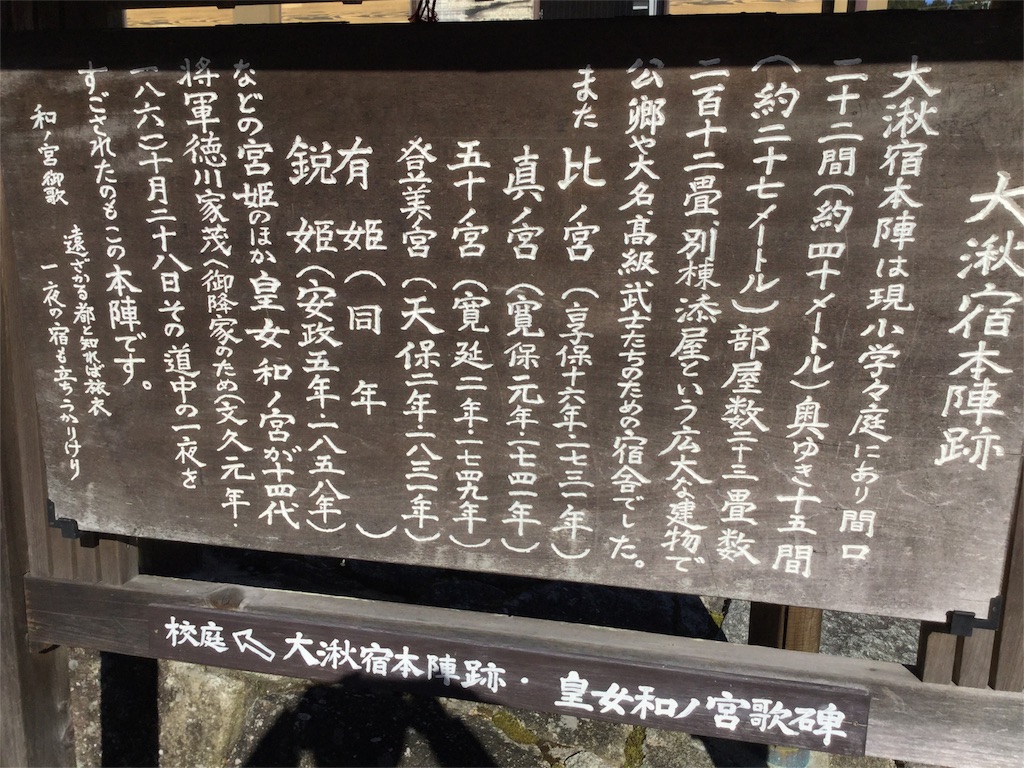 大湫宿本陣跡
大湫宿本陣は現小学々庭にあり間口
二十二間(約四十メートル)奥ゆき十五間
(約二十七メートル)部屋数二十三畳数
二百十二畳、別棟添屋という広大な建物で
公卿や大名、高級武士たちのための宿舎でした。
また 比ノ宮(享保十六年・一七三一年)
真ノ宮(寛保元年・一七四一年)
五十ノ宮(寛延二年・一七四九年)
登美ノ宮(天保二年・一八三一年)
有姫(同年)
鋭姫(安政五年・一八五八年)
などの宮姫のほか皇女和ノ宮が十四代
将軍徳川家茂へ御降家のため(文久元年・
一八六一)十月二十八日その道中の一夜を
すごされたのもこの本陣です。
和ノ宮御歌
遠ざかる都と知れば旅衣
一夜の宿も立ちうかりけり
校庭↖大湫宿本陣跡・皇女和ノ宮歌碑